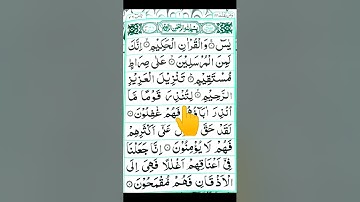 يٰسٓ ۚ وَالْقُرْاٰنِ الْحَكِيْمِ ۙ اِنَّكَ
لَمِنَ الْمُرْسَلِيْنَ ۙ عَلٰى صِرَاطٍ
مُّسْتَقِيْمٍ ؕ تَنْزِيْلَ الْعَزِيْزِ
الرَّحِيْمِ ۙ لِتُنْذِرَ قَوْمًا مَّاۤ
اُنْذِرَ اٰبَآؤُهُمْ فَهُمْ غٰفِلُوْنَ
لَقَدْ حَقَّ عَلٰۤى اَكْثَرِهِمْ
فَهُمْ لَا يُؤْمِنُوْنَ اِنَّا جَعَلْنَا
فِيْۤ اَعْنَاقِهِمْ اَغْلٰلًا فَهِيَ اِلَى
الْاَذْقَانِ فَهُمْ مُّقْمَحُوْنَ